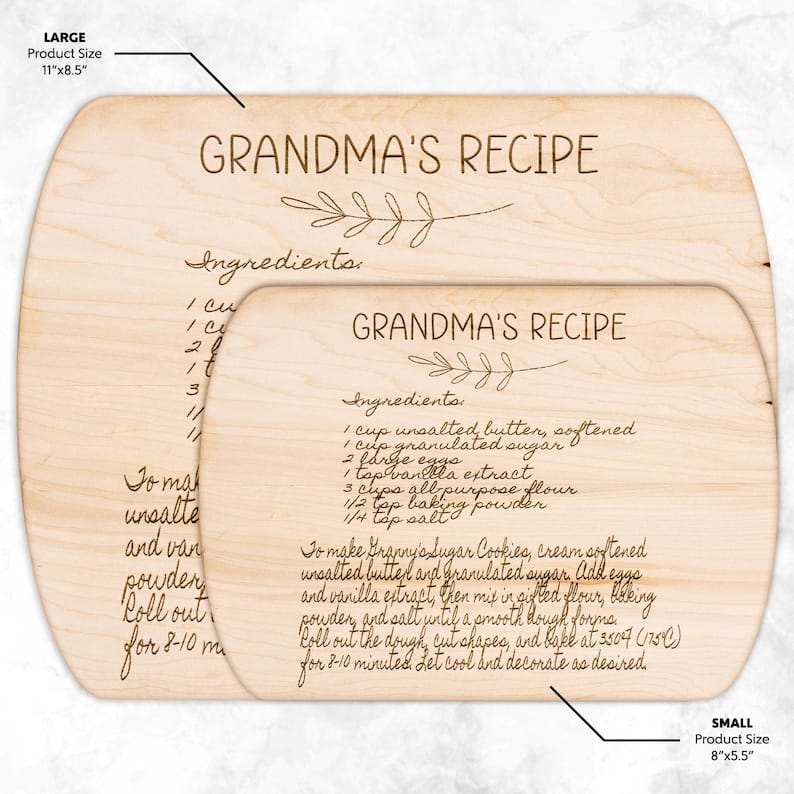 LARGE
Product Size
11"x8.5"
GRANDMA'S RECIPE
Ingredients:
1 cu
1 cu
2 l
1 t
3
1/
1/
To mak
unsalte
and van
powder,
Roll out
for 8-10 m
GRANDMA'S RECIPE
Ingredients:
1 cup unsalted butter, softened
1 cup granulated sugar
2 large eggs
1 tsp vanilla extract
3 cups all-purpose flour
1/2 tsp baking powder
1/4 tsp salt
To make Granny's Sugar Cookies, cream softened
unsalted butter and granulated sugar. Add eggs
and vanilla extract, then mix in sifted flour, baking
powder, and salt until a smooth dough forms.
Roll out the dough, cut shapes, and bake at 350°F (175°C)
for 8-10 minutes. Let cool and decorate as desired.
SMALL
Product Size
8"x5.5"